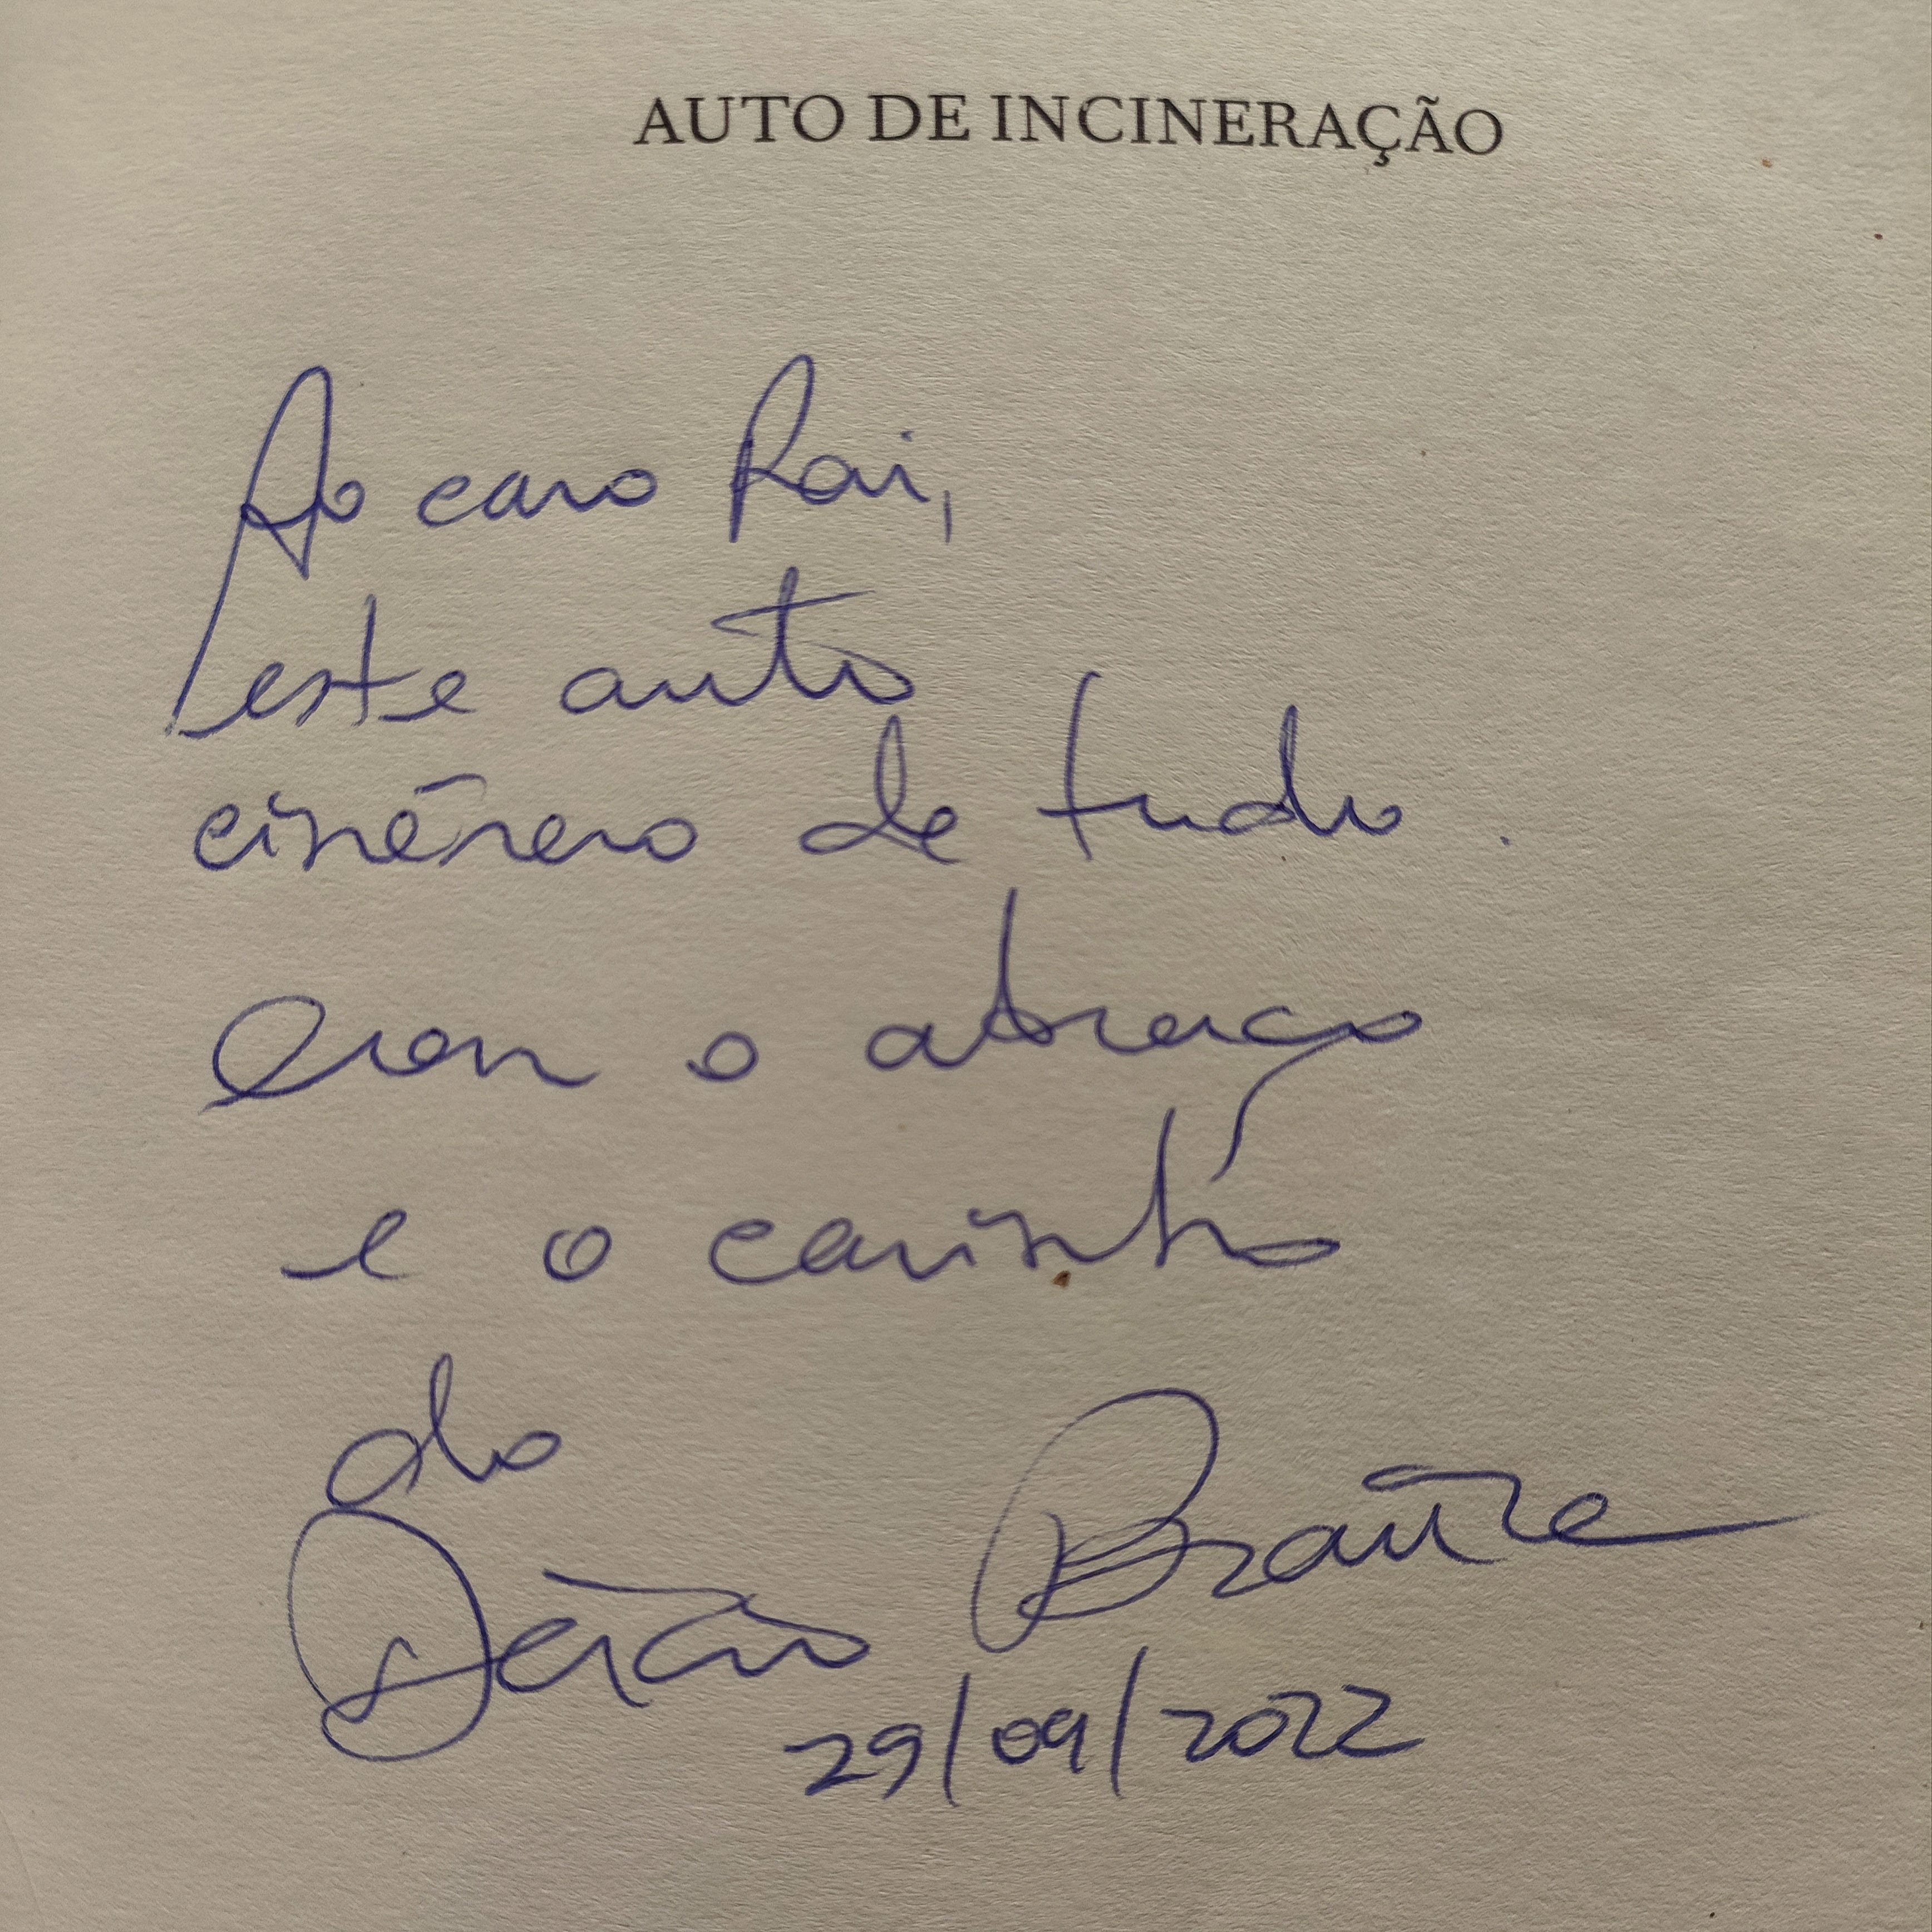 AUTO DE INCINERAÇÃO
Ao caro Rai,
este auto
cinéreo de tudo.
Com o abraço
e o carinho
do
Délcio Braúre
29/09/2022